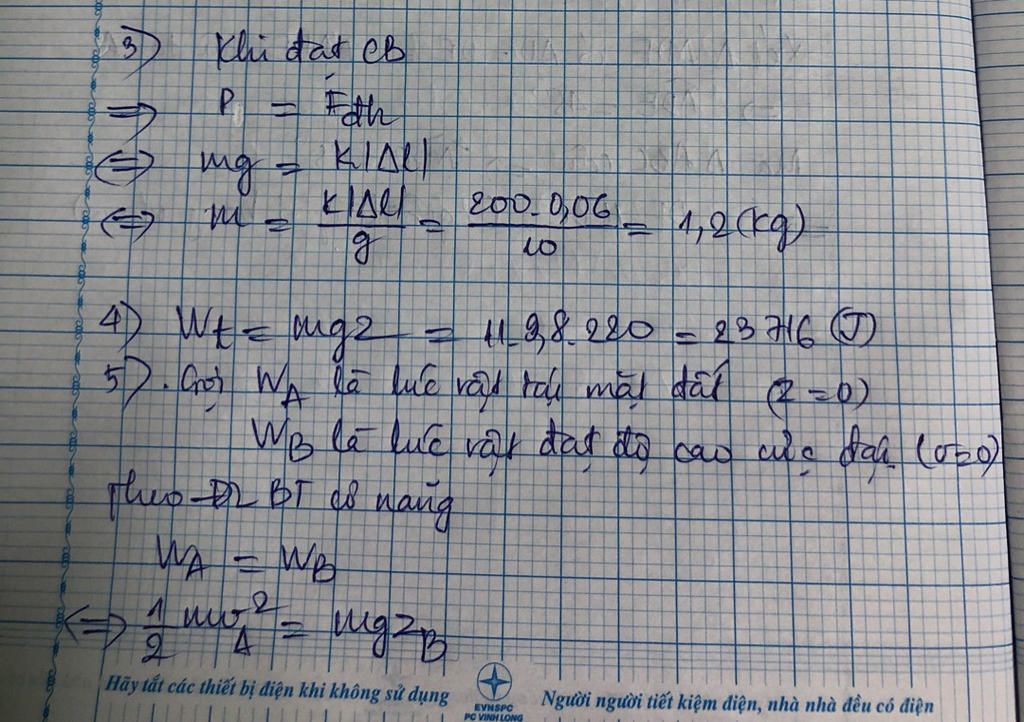 3) Khi đạt CB
⇒ P = Fđh
⇔ mg = K|Δl|
⇔ m = K|Δl| / g = 200.0,06 / 10 = 1,2 (kg)
4) Wt = mgz = 11.9,8.220 = 23716 (J)
5). Gọi WA là lúc vật tại mặt đất (z=0)
WB là lúc vật đạt độ cao cực đại (v=0)
Theo ĐL BT cơ năng
WA = WB
⇔ 1/2 mvA² = mgzB
Hãy tắt các thiết bị điện khi không sử dụng
EVNSPC
PC VINH LONG
Người người tiết kiệm điện, nhà nhà đều có điện